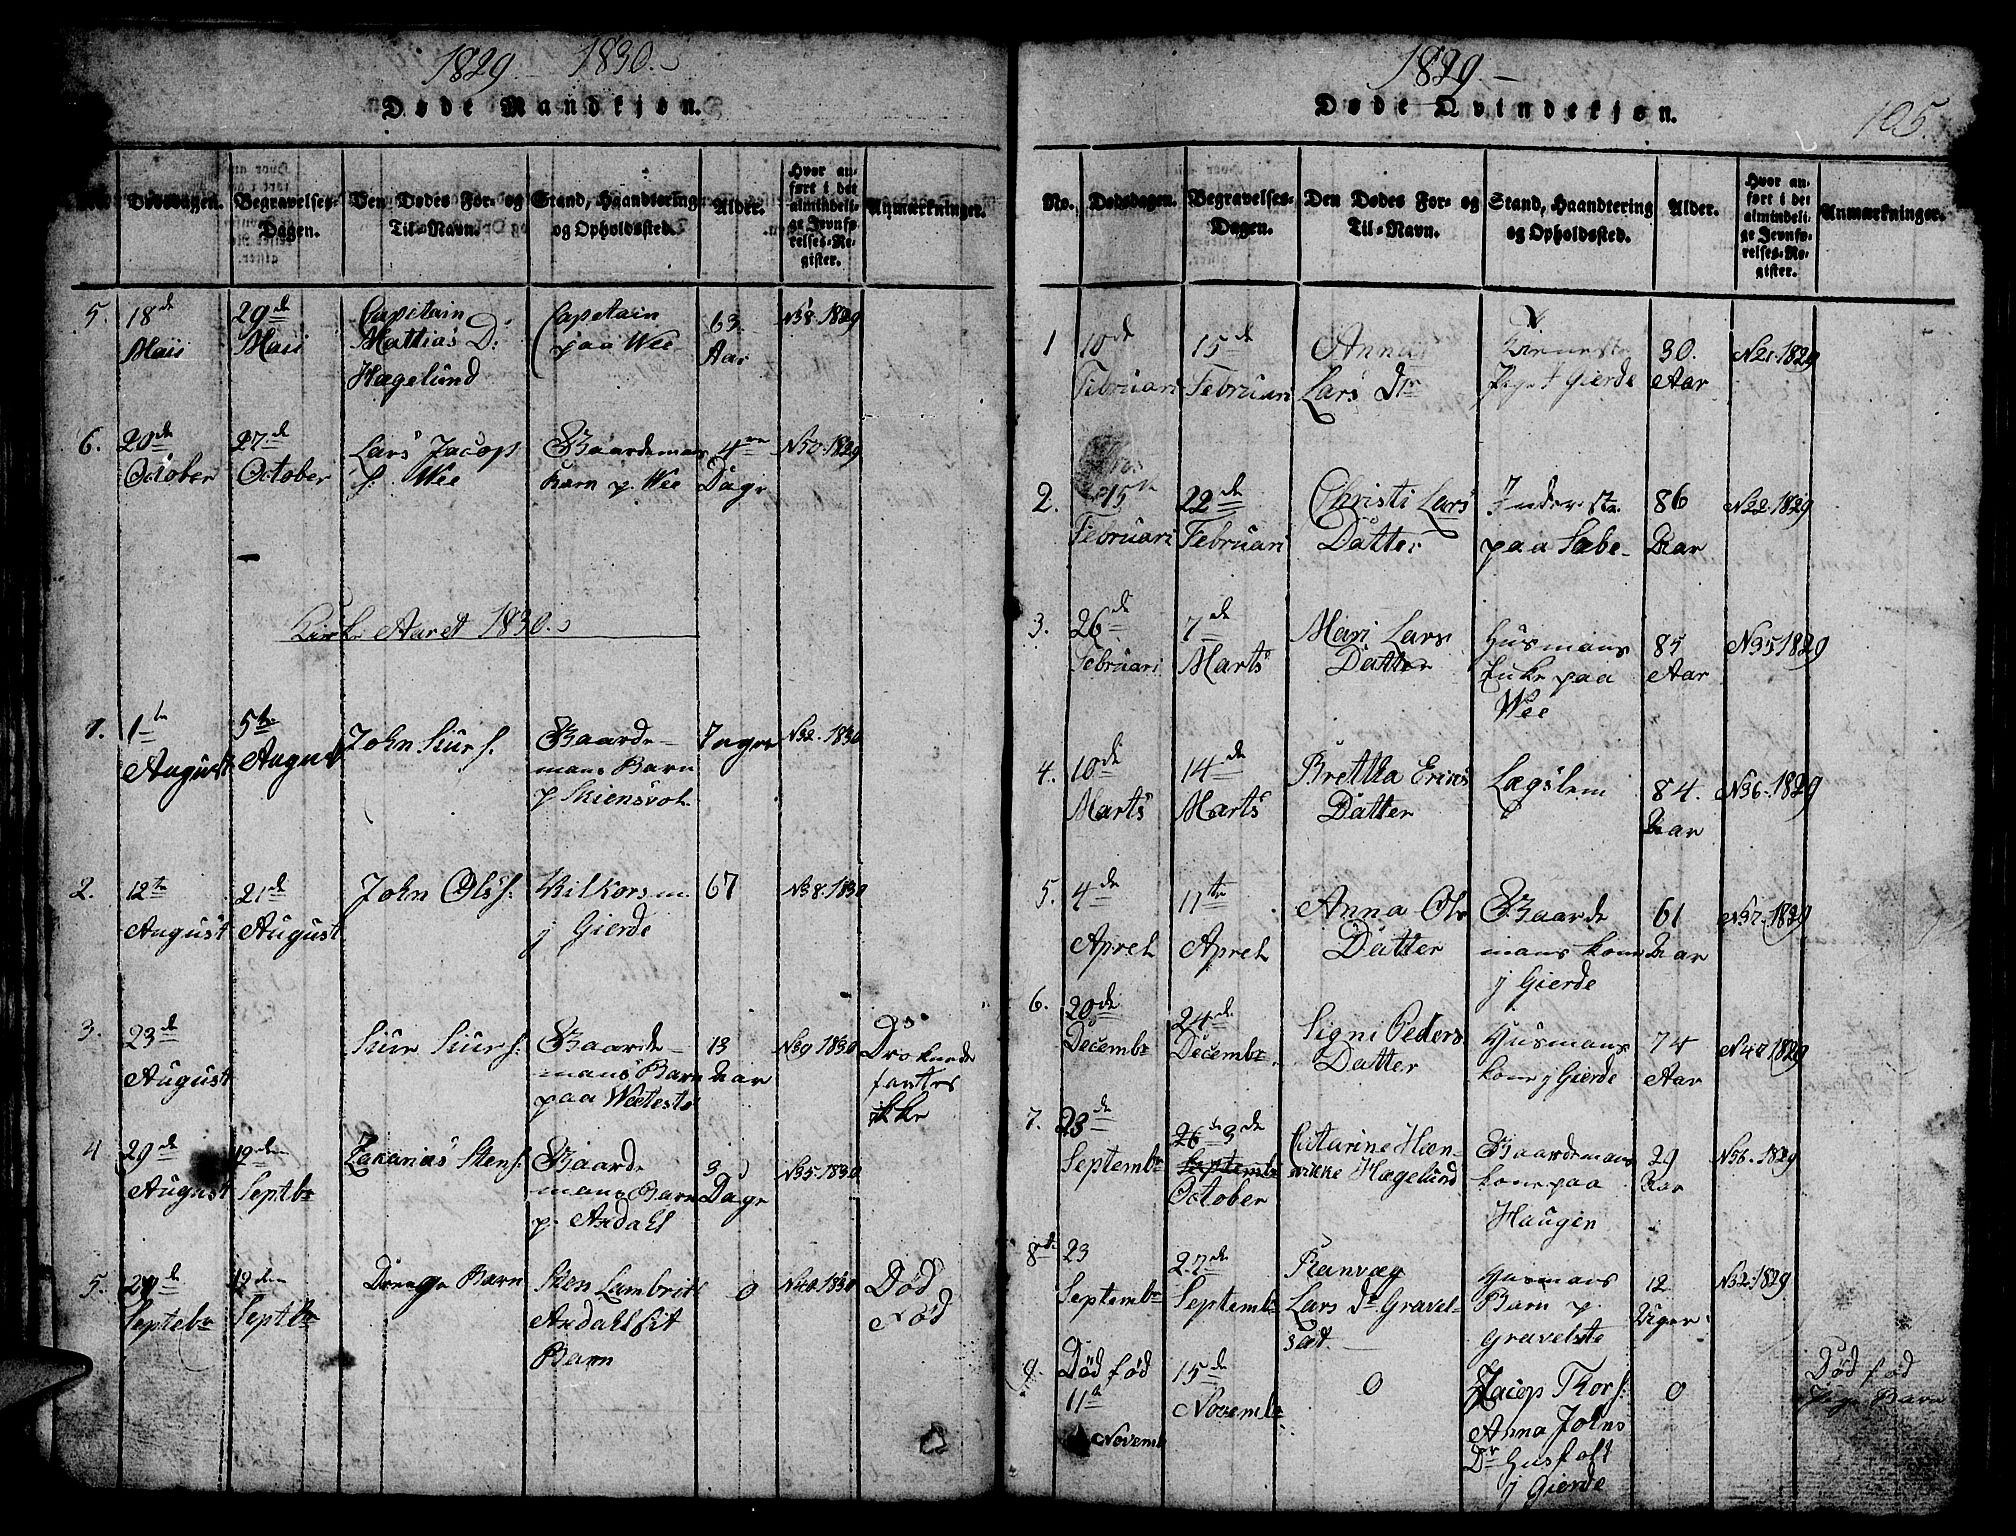 1829 - 1830.
Døde Mandkjøn.
No. Dødsdagen. Begravelses-Dagen. Den Dødes For- og Til-Navn. Stand, Haandtering og Opholdssted. Alder. Hvor anført i det almindelige Jevnførelses-Register. Anmærkninger.
5. 18de Maii 29de Maii Capitain Mattias D: Hægelund Capetain paa Wee 63 Aar N38. 1829
6. 20de October 27de October Lars Jacop s. Wee Gaardemans Barn p. Wee 4re Dage N50. 1829
Kirke Aaret 1830.
1. 1te August 5te August John Siur s. Gaardemans Barn p. Skiensvol N32. 1830
2. 12te August 21de August John Ols s. Kilkorsm. j Gierde 67 N38. 1830
3. 23de August Siur Siurs. Gaardemans Barn paa Weeteste 13 Aar N39 1830 Droknede fantes ikke
4 29de August 12den Septbr Zakarias Stens. Gaardemans Barn p. Axdahl 3 Dage N35. 1830
5. Septebr 12den Septbr Drenge Barn Sten Lambrits Axdahl sit Barn 0 N40. 1830 Død Fød
1829 -
Døde Qvindekjøn.
105.
No. Dødsdagen. Begravelses-Dagen. Den Dødes For- og Til-Navn. Stand, Haandtering og Opholdssted. Alder. Hvor anført i det almindelige Jevnførelses-Register. Anmærkninger.
1 10de Februari 15de Februari Anna Lars Dtr Tieneste Pige j Gierde 30. Aar N21. 1829
2. 15de Februari 22de Februari Christi Lars Datter Inderste paa Sæbe 86 Aar N22. 1829
3. 26de Februari 7de Marts Mari Lars Datter Husmans Enke paa Wee 85 Aar N35 1829
4. 10de Marts 14de Marts Bretlla Erics Datter Lægslem 84. Aar N36. 1829
5. 4de Aprel 11te Aprel Anna Ols Datter Gaardemans kone j Gierde 61 Aar N37. 1829
6. 20de Decembr 24de Decembr. Signi Peders Datter Husmans kone j Gierde 74 Aar N40 1829
7. 23de Septembr 26de 3de Septembr October Catarine Hænrikke Hægelund Gaardemans kone paa Haugen 29 Aar N56. 1829
8de 23 Septembr 27de Septembr Ranvæg Lars Dr Gravelsæt. Husmans Barn p. Gravelste 12 Uger N52. 1829
9. Død fød 11te Novemb 15de Novembr. 0 Jacop Thors. Anna Johns Dr Husfolk j Gierde 0 Død fød Pige Barn